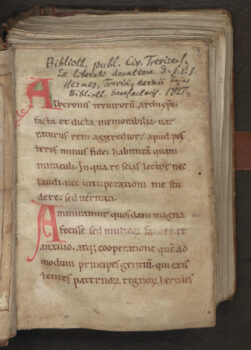 Biblioth. publ. Civ. Trevirens.
Ex liberali donatione D. J. P. J.
Hermes, Trevir. eximii hujus
Biblioth. benefactoris. 1827.
Alberonis treuiroru archiepi
facta et dicta memorabilia nar
raturus rem aggredior, apud pos
teros minus fidei habitura quam
miraculi. In qua re sciat lector nec
laudi nec uituperationi me stu
dere, sed ueritati.
Animaduertimus quosdam magna
fecisse, sed multorum fauore et
auxilio, atque cooperatione, que ad
modum principes gentiu, qui exis
tentes paternorum regnorum heredes